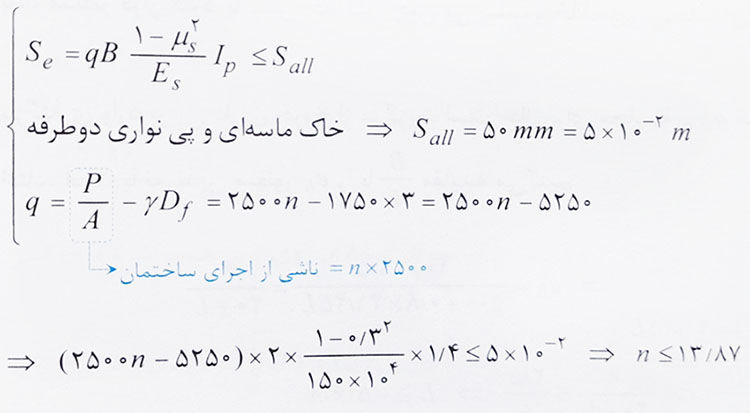 S_e = qB (۱ - μ_s^۲) / E_s I_p ≤ S_all
خاک ماسه‌ای و پی نواری دوطرفه ⇒ S_all = ۵۰ mm = ۵ × ۱۰^-۲ m
q = P / A - γD_f = ۲۵۰۰n - ۱۷۵۰ × ۳ = ۲۵۰۰n - ۵۲۵۰
ناشی از اجرای ساختمان = n × ۲۵۰۰
⇒ (۲۵۰۰n - ۵۲۵۰) × ۲ × (۱ - ۰/۳^۲) / (۱۵۰ × ۱۰^۴) × ۱/۴ ≤ ۵ × ۱۰^-۲ ⇒ n ≤ ۱۳/۸۷